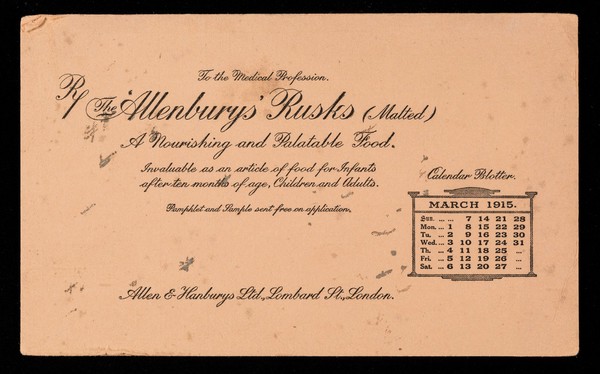 To the Medical Profession.
Rx The 'Allenburys' Rusks (Malted)
A Nourishing and Palatable Food.
Invaluable as an article of food for Infants
after ten months of age, Children and Adults.
Pamphlet and Sample sent free on application.
Calendar Blotter.
MARCH 1915.
Sun. ... ... 7 14 21 28
Mon. ... 1 8 15 22 29
Tu. ... 2 9 16 23 30
Wed. ... 3 10 17 24 31
Th. ... 4 11 18 25 ...
Fri. ... 5 12 19 26 ...
Sat. ... 6 13 20 27 ...
Allen & Hanburys Ltd., Lombard St., London.